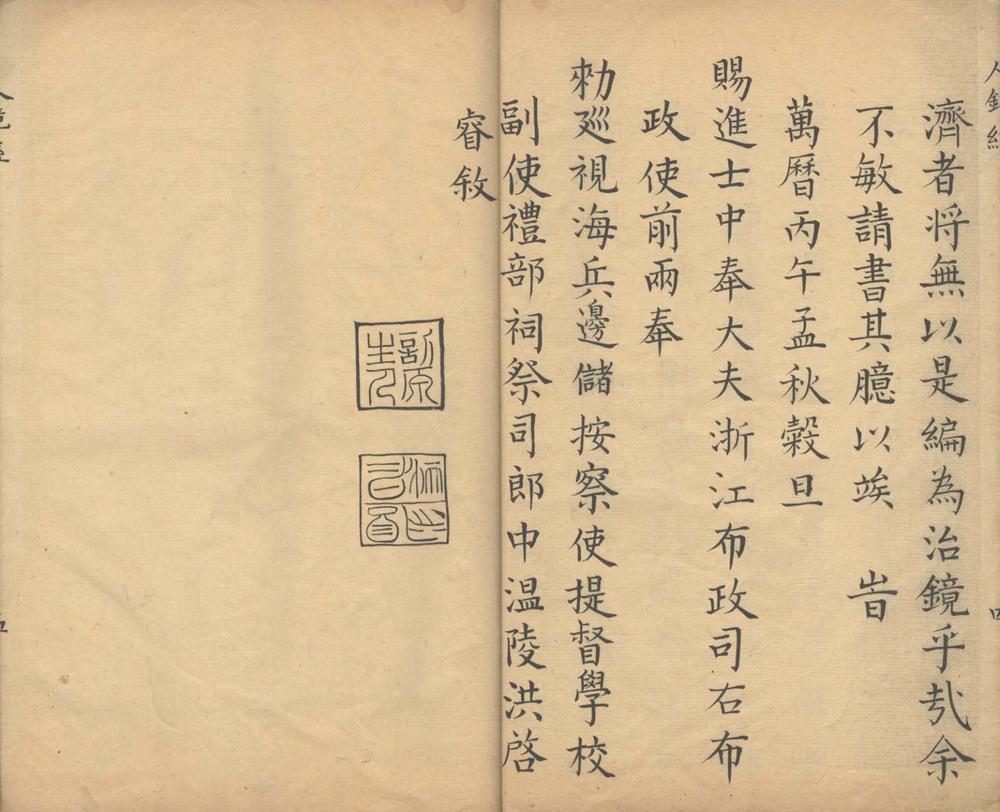 濟者将無以是編為治鏡乎㢤余
不敏請書其臆以竢 旹
萬曆丙午孟秋穀旦
賜進士中奉大夫浙江布政司右布
政使前兩奉
勑廵視海兵邊儲按察使提督學校
副使禮部祠祭司郎中温陵洪啓
睿敘